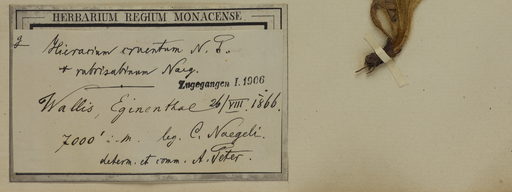 HERBARIUM REGIUM MONACENSE
Hieracium cruentum N. P.
+ rubrisabinum Naeg.
Zugegangen I. 1906
Wallis, Eginenthal 26/VIII. 1866.
7000' ü. m. leg. C. Naegeli.
determ. et comm. A. Peter.